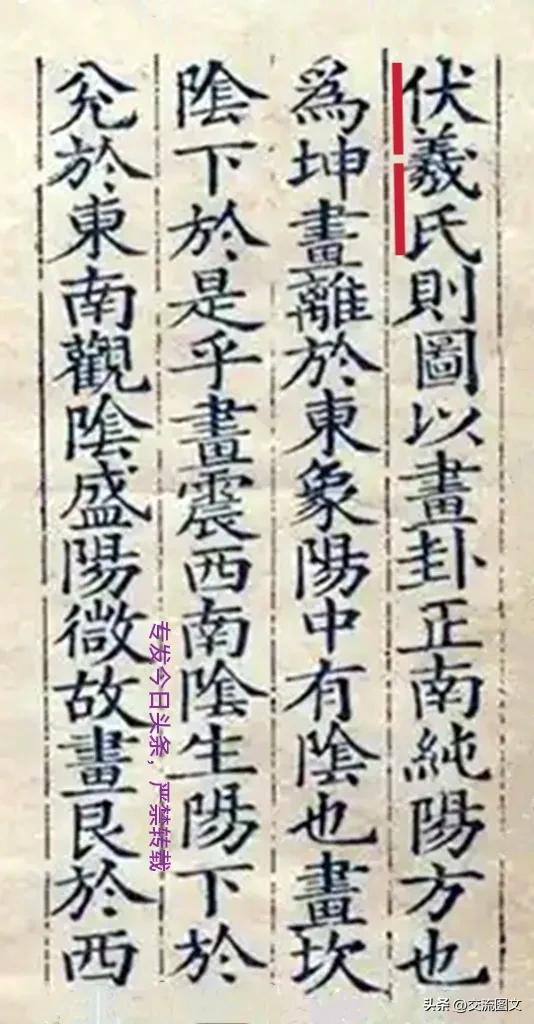 伏羲氏則圖以畫卦正南純陽方也
爲坤畫離於東象陽中有陰也畫坎
陰下於是乎畫震西南陰生陽下於
兊於東南觀陰盛陽微故畫艮於西
专发今日头条，严禁转载
头条 @交流图文